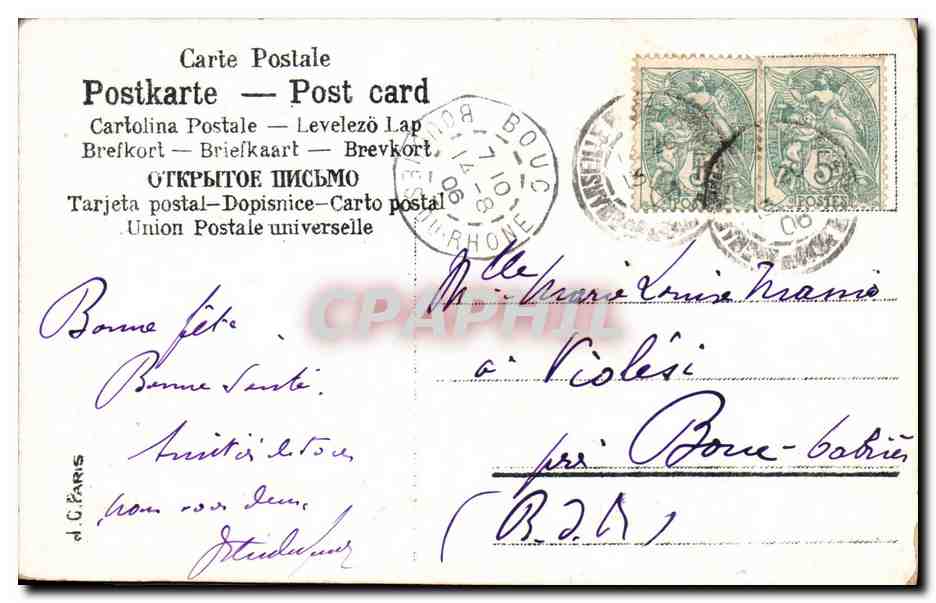 Carte Postale
Postkarte — Post card
Cartolina Postale — Levelezö Lap
Brefkort — Briefkaart — Brevkort
ОТКРЫТОЕ ПИСЬМО
Tarjeta postal—Dopisnice—Carto postal
Union Postale universelle
BOUC
BOUCHES-DU-RHONE
7 10
14 -8
06
MARSEILLE
5
POSTES
5
POSTES
06
CPAPHIL
Mlle Marie Louise
à Violési
près Bouc-Cabriès
(B. d. R)
Bonne fête
Bonne Santé.
Amitiés de tous
pour vous deux
J.C. PARIS